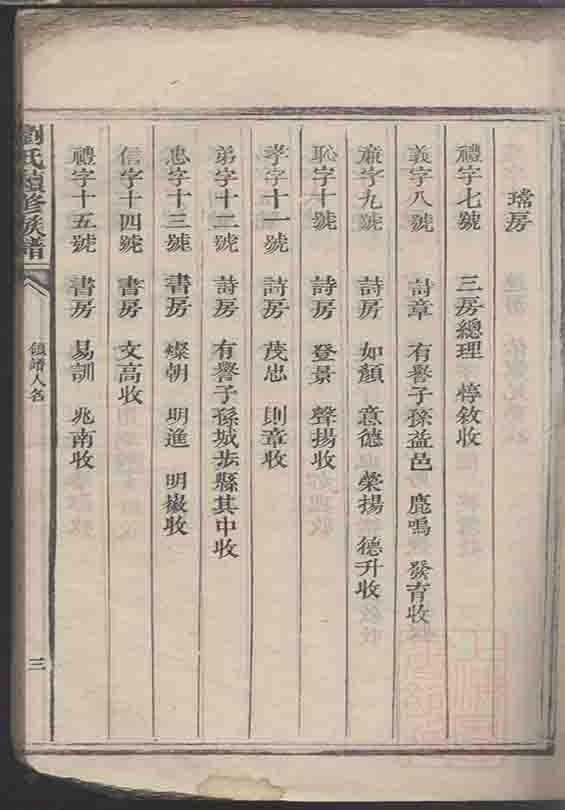 瑺房
禮字七號 三房總理 惇敘收
義字八號 詩章 有譽子孫益邑 鹿鳴 發育收
廉字九號 詩房 如顏 意德 榮揚 德升收
字十號 詩房 登景 聲揚收
孝字十一號 詩房 茂忠 則章收
弟字十二號 詩房 有譽子孫城步縣其中收
忠字十三號 書房 燦朝 明逵 明嶽收
信字十四號 書房 文高收
禮字十五號 書房 易訓 兆南收
劉氏續修族譜
領譜人名
三